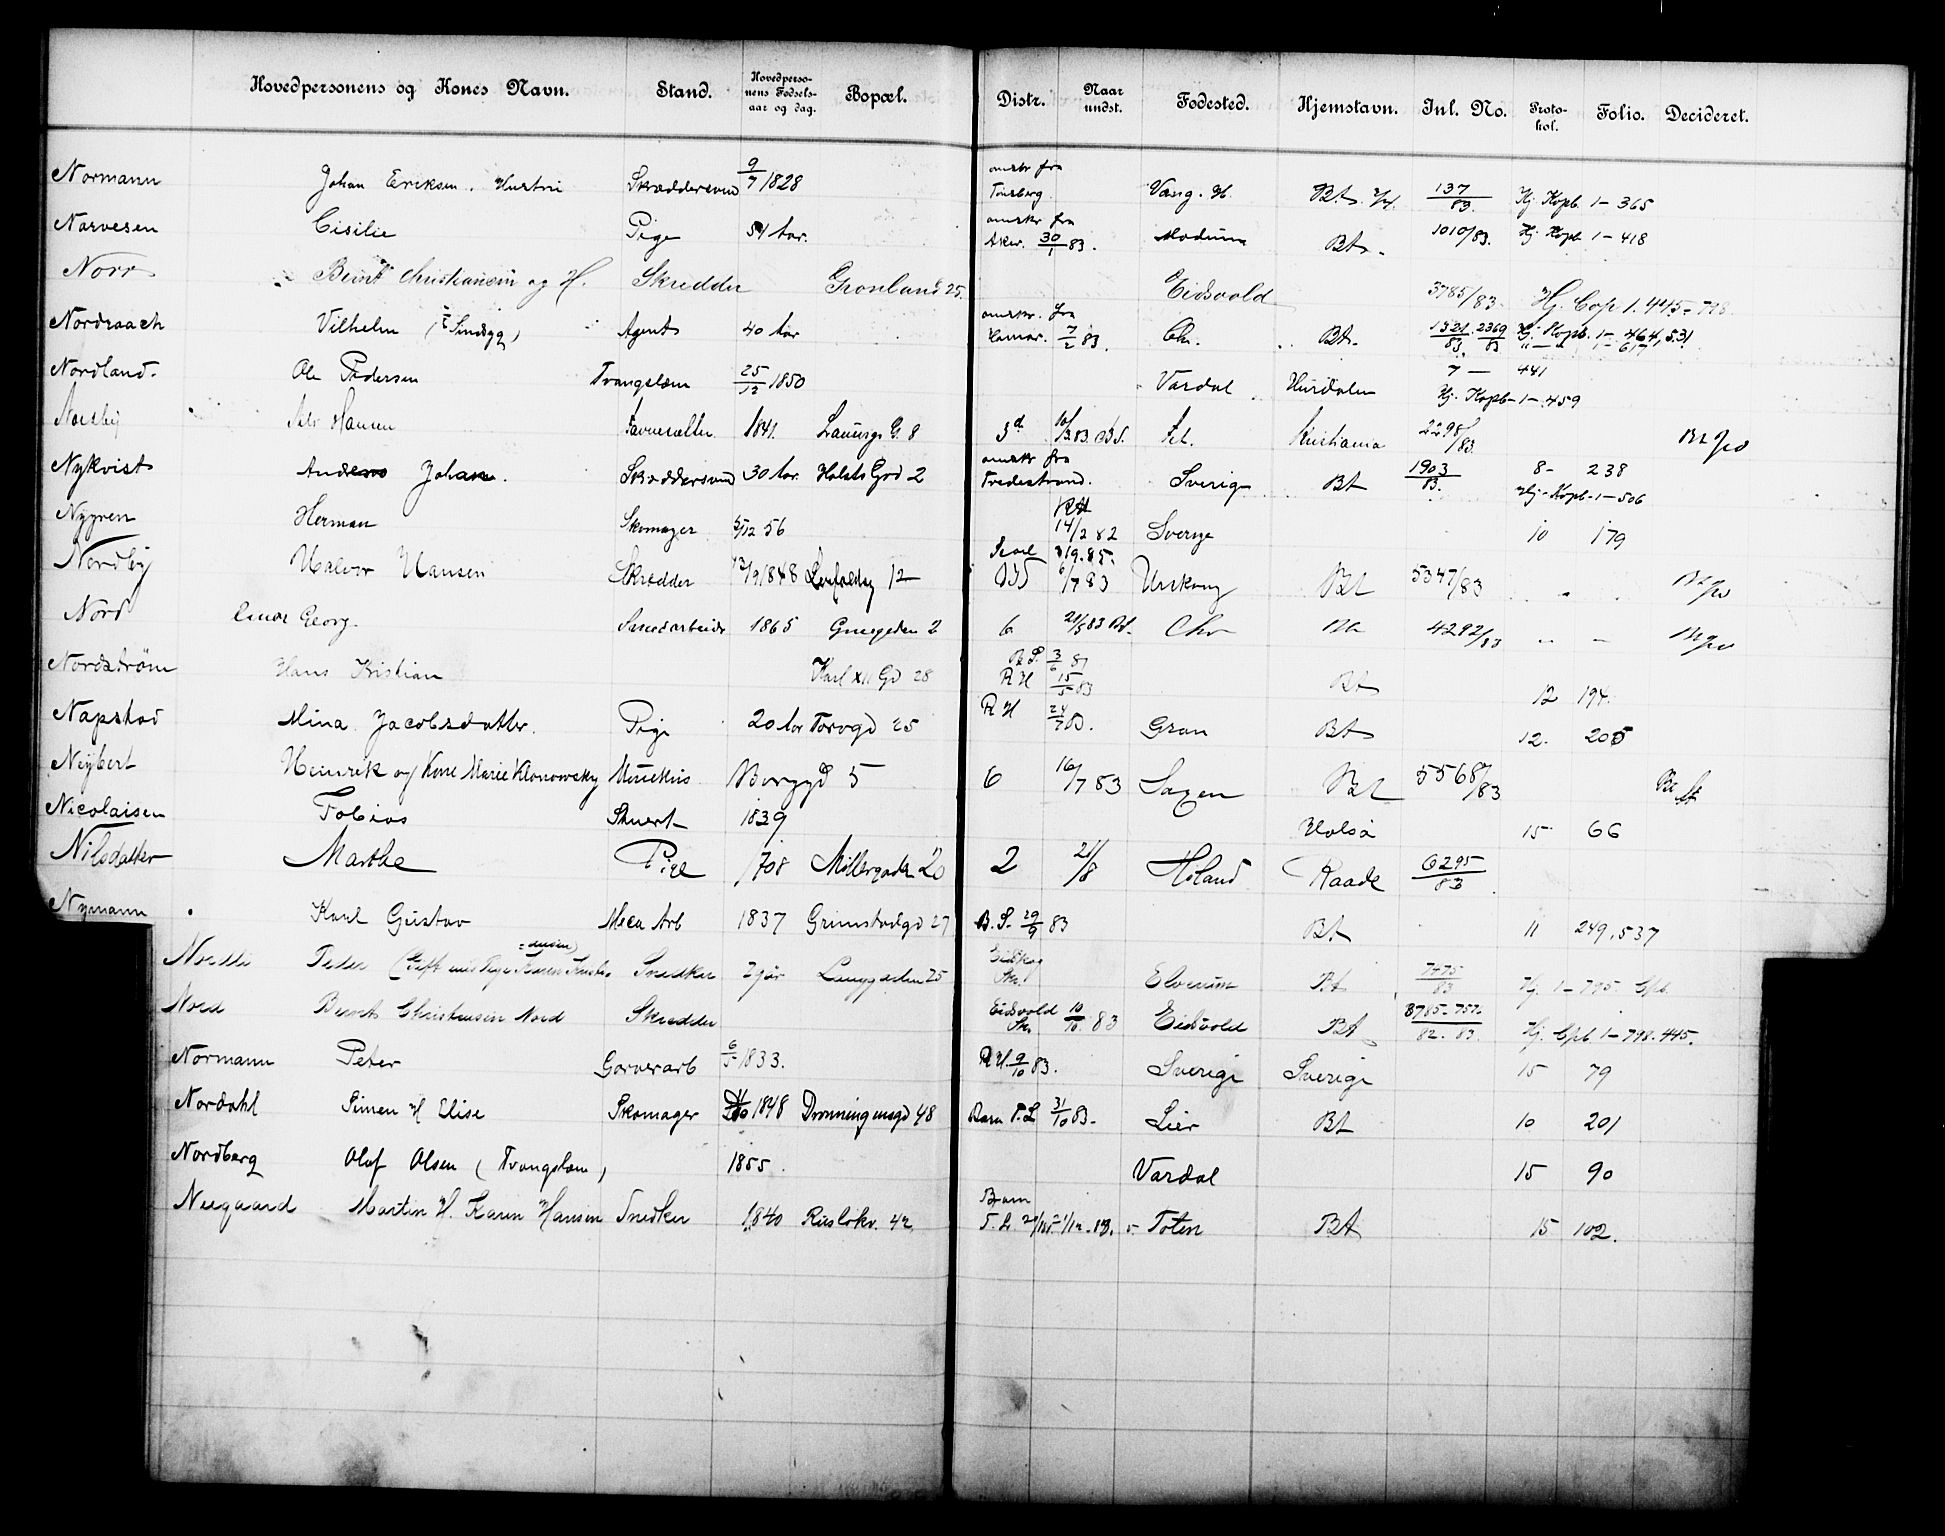 Hovedpersonens og Kones Navn. Stand. Hovedpersonens Fødselsaar og dag. Bopæl. Distr. Naar undst. Fødested. Hjemstavn. Inl. No. Protokol. Folio. Decideret.
Normann Johan Eriksen. Hustru Skræddersvend 9/7 1828 omskr fra Tønsberg. Vang. H. Bt. 137/83. Hj. Kopb. 1 - 365
Narvesen Cisilie Pige 54 aar. omskr fra Aker. 30/1 83. Modum Bt. 1010/83. Hj. Kopb 1 - 418
Norr Bernt Christiansen og H. Skrædder Grønland 25. Eidsvold 3785/83 Hj. Cop 1. 445-798
Nordraach Vilhelm (Sindsyg) Agent 40 Aar omskr. fra Hamar. 7/2 83. Chr. Bt. 1521/83. 2369/83 Hj. Kopb. 1 - 464, 531
" — " 1 - 617
Nordland. Ole Pedersen Tvangslem 25/12 1850 Vardal Hurdalen 7 — 441
Hj. Kopb - 1 - 459
Nordby Hansen 1841. G. 8 3d Kristiania 2298/83.
Nykvist Anders Johan. Skræddersvend 30 Aar. Holsts Gd 2 omskr fra Fredrikstrand. Sverig Bt 1903/83. 8 - 238
Hj. Kopb - 1 - 506
Nygren Herman Skomager 5/12 56 14/2 82 Sverge 10 179
Nordby Halvor Hansen Skrædder 1848 12 6/7 83 Urskoug Bt 5347/83
Nord Einar Georg. 1865 2 6 21/5 83 Bt. Chr 4292/83
Nordstrøm Hans Kristian Karl XII Gd 28 B. S. 3/6 81
R H 15/5 83 Bt 12 194.
Napstad Mina Jacobsdatter. Pige 20 Aar Torvgd 25 R H 24/7 83. Gran Bt 12. 205
Neybert Heinrik og Kone Marie Klonowsky Musikus Borggd 5 6 16/7 83 Saxen Bt 5568/83
Nicolaisen Tobias Skuert 1839 Holsø 15 66
Nilsdatter Marthe Pige 1708 Møllergaden 20 2 21/8 Høland Raade 6295/83
Nymann Karl Gustav Meca Arb 1837 Grimstadgd 27 B. S. 29/9 83 Bt 11 249, 537
Nordli Peder Snedker Langgaden 25 Elverum Bt 7475/83 Hj. 1 - 795. Cpb.
Nord Bernt Christensen Nord Skrædder Eidsvold Str 10/10 83 Eidsvold Bt 3785-757/82-83. Hj. Cpb. 1 - 798. 445.
Normann Peter Garverarb 6/5 1833. R H. 9/10 83. Sverige Sverige 15 79
Nordahl Simen H Elise Skomager 1848 Dronningensgd 48 Barn T. L 31/10 83. Lier Bt 10 201
Nordberg Olof Olsen (Tvangslem) 1855. Vardal 15 90
Neegaard Martin H. Karen Hansen Snedker 1840 Ruseløkv. 42 Barn T. L. Toten Bt 15 102.